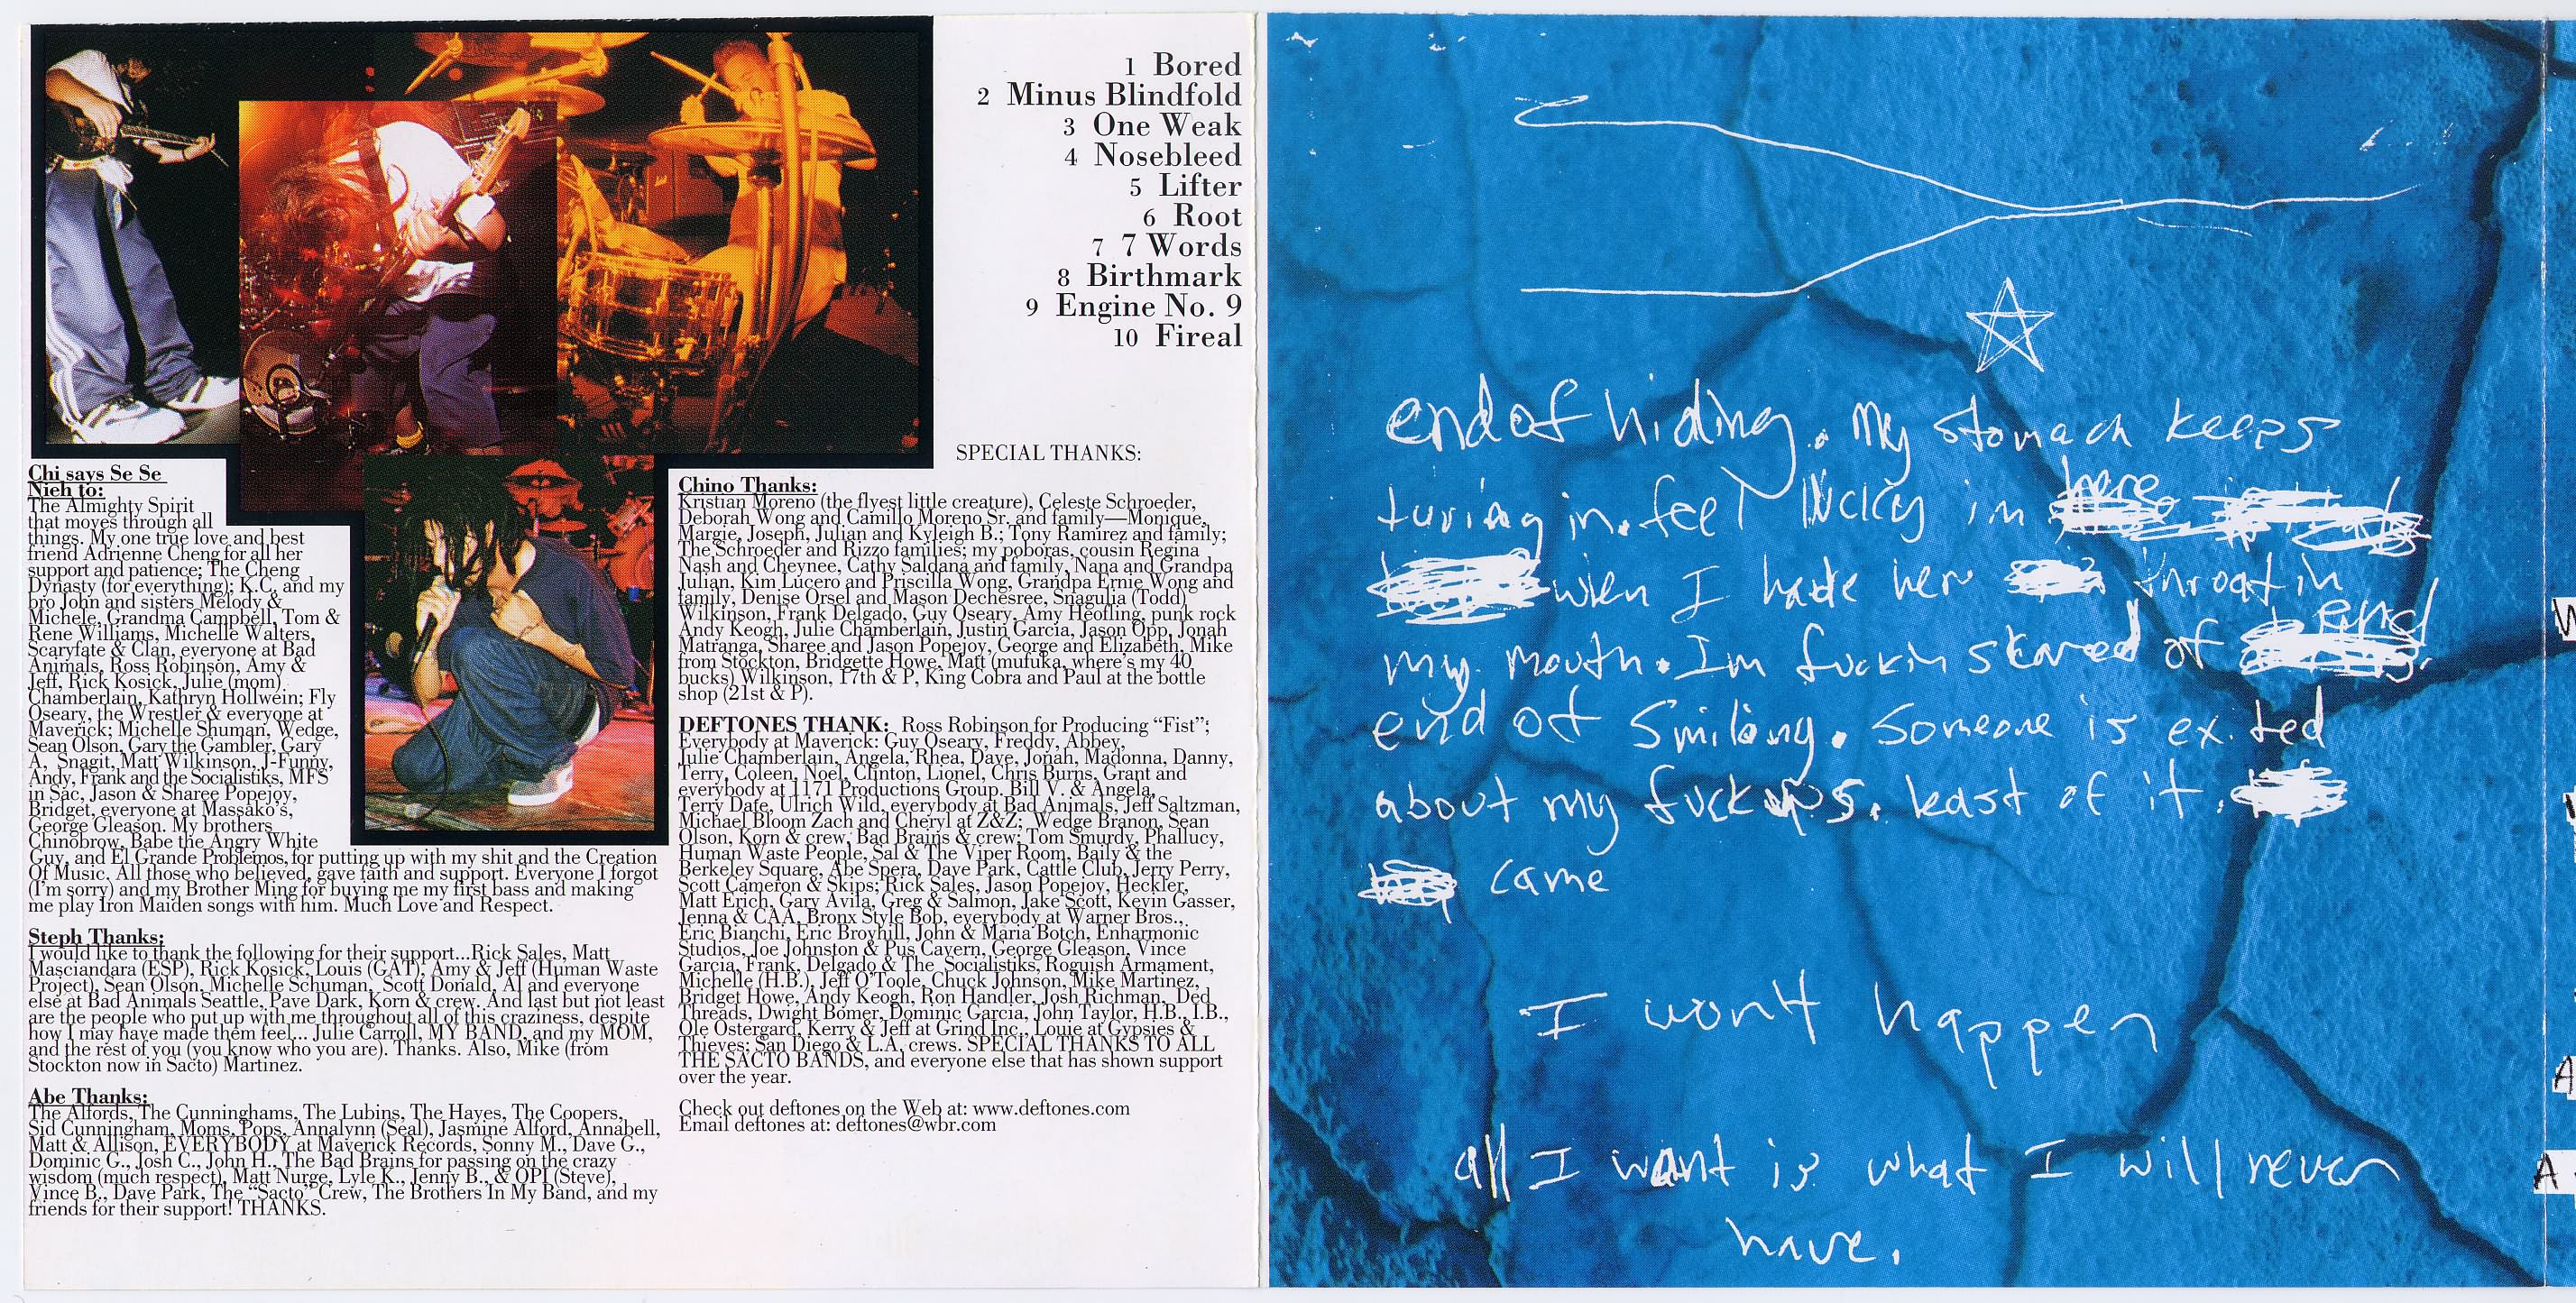 1 Bored
2 Minus Blindfold
3 One Weak
4 Nosebleed
5 Lifter
6 Root
7 7 Words
8 Birthmark
9 Engine No. 9
10 Fireal
SPECIAL THANKS:
Chi says Se Se
Nieh to:
The Almighty Spirit
that moves through all
things. My one true love and best
friend Adrienne Cheng for all her
support and patience; The Cheng
Dynasty (for everything); K.C. and my
bro John and sisters Melody &
Michele, Grandma Campbell, Tom &
Rene Williams, Michelle Walters,
Scaryfate & Clan, everyone at Bad
Animals, Ross Robinson, Amy &
Jeff, Rick Kosick, Julie (mom)
Chamberlain, Kathryn Hollwein; Fly
Oseary, the Wrestler & everyone at
Maverick; Michelle Shuman, Wedge,
Sean Olson, Gary the Gambler, Gary
A, Snagit, Matt Wilkinson, J-Funny,
Andy, Frank and the Socialistiks, MFS
in Sac, Jason & Sharee Popejoy,
Bridget, everyone at Massako's,
George Gleason. My brothers
Chinobrow, Babe the Angry White
Guy, and El Grande Problemos, for putting up with my shit and the Creation
Of Music. All those who believed, gave faith and support. Everyone I forgot
(I'm sorry) and my Brother Ming for buying me my first bass and making
me play Iron Maiden songs with him. Much Love and Respect.
Steph Thanks:
I would like to thank the following for their support...Rick Sales, Matt
Masciandara (ESP), Rick Kosick, Louis (GAT), Amy & Jeff (Human Waste
Project), Sean Olson, Michelle Schuman, Scott Donald, Al and everyone
else at Bad Animals Seattle, Pave Dark, Korn & crew. And last but not least
are the people who put up with me throughout all of this craziness, despite
how I may have made them feel... Julie Carroll, MY BAND, and my MOM,
and the rest of you (you know who you are). Thanks. Also, Mike (from
Stockton now in Sacto) Martinez.
Abe Thanks:
The Alfords, The Cunninghams, The Lubins, The Hayes, The Coopers,
Sid Cunningham, Moms, Pops, Annalynn (Seal), Jasmine Alford, Annabell,
Matt & Allison, EVERYBODY at Maverick Records, Sonny M., Dave G.,
Dominic G., Josh C., John H., The Bad Brains for passing on the crazy
wisdom (much respect), Matt Nurge, Lyle K., Jenny B., & OPI (Steve),
Vince B., Dave Park, The "Sacto" Crew, The Brothers In My Band, and my
friends for their support! THANKS.
Chino Thanks:
Kristian Moreno (the flyest little creature), Celeste Schroeder,
Deborah Wong and Camillo Moreno Sr. and family—Monique,
Margie, Joseph, Julian and Kyleigh B.; Tony Ramirez and family;
The Schroeder and Rizzo families; my poboras, cousin Regina
Nash and Cheynee, Cathy Saldana and family, Nana and Grandpa
Julian, Kim Lucero and Priscilla Wong, Grandpa Ernie Wong and
family, Denise Orsel and Mason Dechesree, Snagulia (Todd)
Wilkinson, Frank Delgado, Guy Oseary, Amy Heofling, punk rock
Andy Keogh, Julie Chamberlain, Justin Garcia, Jason Opp, Jonah
Matranga, Sharee and Jason Popejoy, George and Elizabeth, Mike
from Stockton, Bridgette Howe, Matt (mufuka, where's my 40
bucks) Wilkinson, 17th & P, King Cobra and Paul at the bottle
shop (21st & P).
DEFTONES THANK: Ross Robinson for Producing "Fist";
Everybody at Maverick: Guy Oseary, Freddy, Abbey,
Julie Chamberlain, Angela, Rhea, Dave, Jonah, Madonna, Danny,
Terry, Coleen, Noel, Clinton, Lionel, Chris Burns, Grant and
everybody at 1171 Productions Group. Bill V. & Angela,
Terry Date, Ulrich Wild, everybody at Bad Animals, Jeff Saltzman,
Michael Bloom Zach and Cheryl at Z&Z; Wedge Branon, Sean
Olson, Korn & crew, Bad Brains & crew; Tom Smurdy, Phallucy,
Human Waste People, Sal & The Viper Room, Baily & the
Berkeley Square, Abe Spera, Dave Park, Cattle Club, Jerry Perry,
Scott Cameron & Skips; Rick Sales, Jason Popejoy, Heckler,
Matt Erich, Gary Avila, Greg & Salmon, Jake Scott, Kevin Gasser,
Jenna & CAA, Bronx Style Bob, everybody at Warner Bros.,
Eric Bianchi, Eric Broyhill, John & Maria Botch, Enharmonic
Studios, Joe Johnston & Pus Cavern, George Gleason, Vince
Garcia, Frank, Delgado & The Socialistiks, Roguish Armament,
Michelle (H.B.), Jeff O'Toole, Chuck Johnson, Mike Martinez,
Bridget Howe, Andy Keogh, Ron Handler, Josh Richman, Ded
Threads, Dwight Bomer, Dominic Garcia, John Taylor, H.B., I.B.,
Ole Ostergard, Kerry & Jeff at Grind Inc., Louie at Gypsies &
Thieves; San Diego & L.A. crews. SPECIAL THANKS TO ALL
THE SACTO BANDS, and everyone else that has shown support
over the year.
Check out deftones on the Web at: www.deftones.com
Email deftones at: deftones@wbr.com
end of hiding. My stomach keeps
turing in. feel lucky in here
when I hade her throat in
my mouth. Im fuckin scared of end
end of smiling. Someone is exited
about my fuckups. least of it.
came
I won't happen
all I want is what I will never
have.